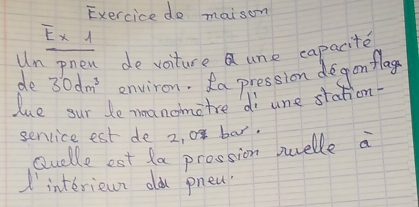 Exercice de maison
Ex 1
Un pneu de voiture a une capacité
de 30dm³ environ. La pression dégonflag
lue sur le manomètre d'une station-
service est de 2,0 bar.
Quelle est la pression ruelle à
l'intérieur du pneu.